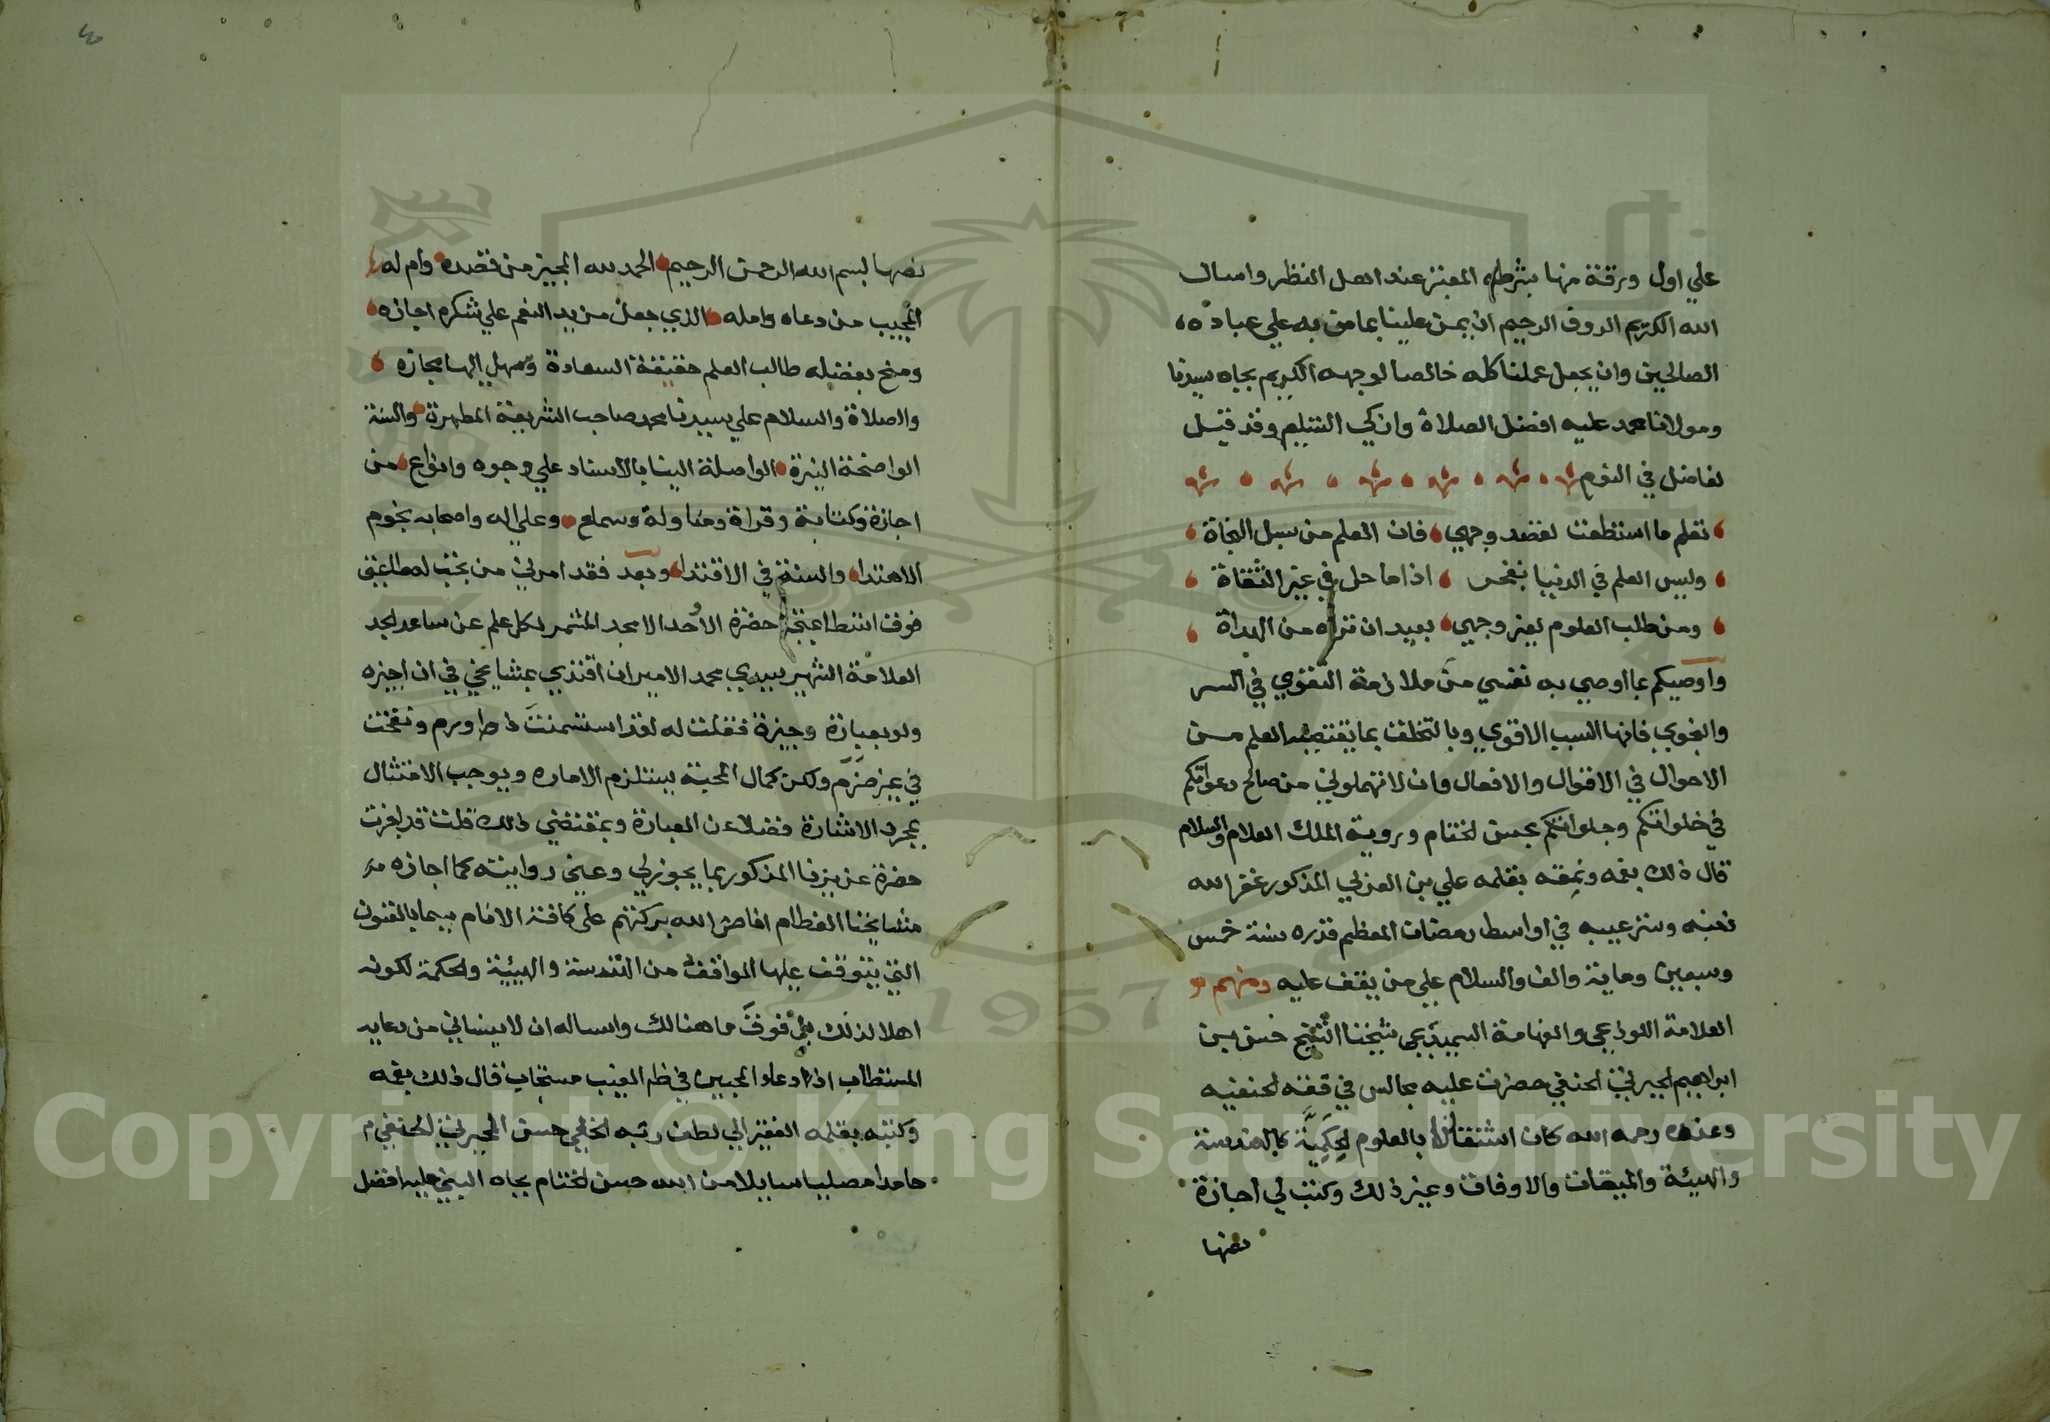 علي اول ورقة منها بشرطه المعتبر عند اهل النظر واسال
الله الكريم الروف الرحيم ان يمن علينا بما من به علي عباده
الصالحين وان يجعل عملنا كله خالصا لوجهه الكريم بجاه سيدنا
ومولانا محمد عليه افضل الصلاة وازكي التسليم وقد قيل
لفاضل في النوم
تعلم ما استطعت لقصد وجهي فان العلم من سبل النجاة
وليس العلم في الدنيا بفخر اذا ما حل في غير الثقاة
ومن طلب العلوم لغير وجهي بعيد ان تراه من الهداة
واوصيكم بما اوصي به نفسي من ملازمة التقوي في السر
والنجوي فانها السبب الاقوي وبالتخلق بما يقتضيه العلم من
الاحوال في الاقوال والافعال وان لا تهملوني من صالح دعواتكم
في خلواتكم وجلواتكم بحسن الختام وروية الملك العلام والسلام
قال ذلك بفمه ونمقه بقلمه علي بن العزلي المذكور غفر الله
ذنبه وستر عيبه في اواسط رمضان المعظم قدره سنة خمس
وسبعين وماية والف والسلام علي من يقف عليه ومنهم
العلامة اللوذعي والفهامة السميذعي شيخنا الشيخ حسن بن
ابراهيم الجبرتي الحنفي حضرت عليه مجالس في فقه الحنفيه
وعنده رحمه الله كان اشتغالنا بالعلوم الحكمية كالهندسة
والهيئة والميقات والاوفاق وغير ذلك وكتب لي اجازة
نصها
نصها بسم الله الرحمن الرحيم الحمد لله المجيز من قصده وام له
المجيب من دعاه وامله الذي جعل مزيد النعم علي شكره اجازه
ومنح بفضله طالب العلم حقيقة السعادة وسهل اليها مجازه
والصلاة والسلام علي سيدنا محمد صاحب الشريعة المطهرة والسنة
الواضحة النيرة الواصلة الينا بالاسناد علي وجوه وانواع من
اجازة وكتابة وقراة ومناولة وسماع وعلي اله واصحابه نجوم
الاهتدا والسنة في الاقتدا وبعد فقد امرني من تجب له مطاعتي
فوق استطاعتي حضرة الاوحد الامجد المشمر بكل علم عن ساعد الجد
العلامة الشهير سيدي محمد الامير ان اقتدي بمشايخي في ان اجيزه
ولو بعبارة وجيزة فقلت له لقد استسمنت ذا ورم ونفخت
في غير ضرم ولكن كمال المحبة يستلزم الاماره ويوجب الامتثال
بمجرد الاشارة فضلا عن العبارة وبمقتضي ذلك قلت قد اجزت
حضرة عزيزنا المذكور بما يجوز لي وعني روايته كما اجازه
مشايخنا العظام افاض الله بركتهم على كافة الانام سيما بالفنون
التي يتوقف عليها المواقف من الهندسة والهيئة والحكمة لكونه
اهلا لذلك بل فوق ما هنالك واساله ان لا ينساني من دعايه
المستطاب اذا دعاء المحبين في ظهر الغيب مستجاب قال ذلك بفمه
وكتبه بقلمه الفقير الي لطف ربه الخفي حسن الجبرتي الحنفي
حامدا مصليا سايلا من الله حسن الختام بجاه النبي عليه افضل
Copyright © King Saud University
1957